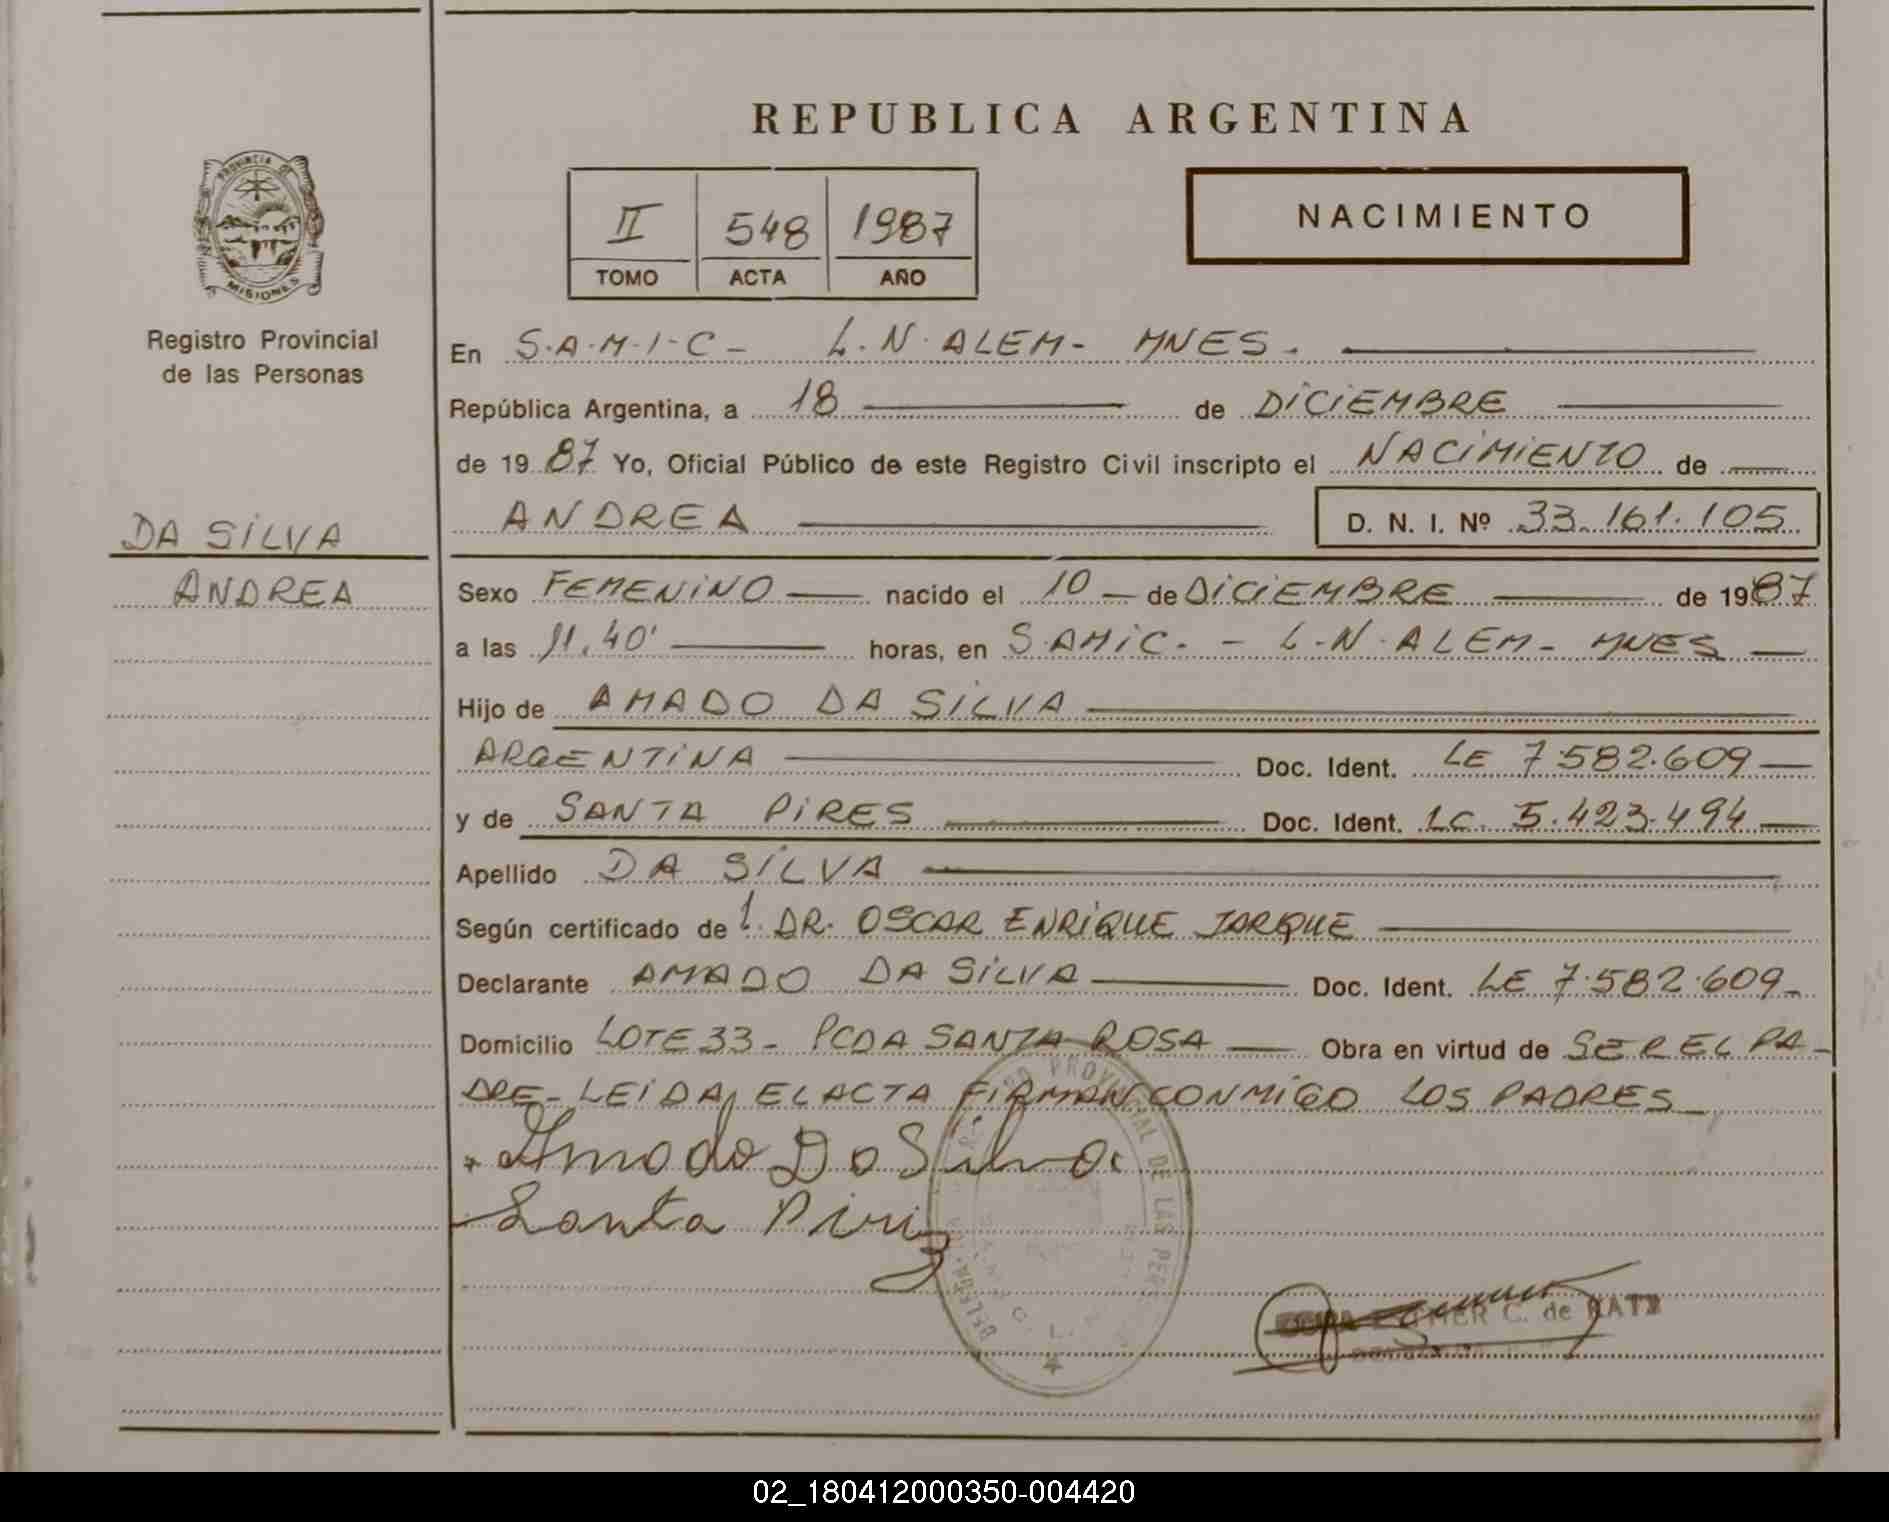 REPUBLICA ARGENTINA
PROVINCIA DE MISIONES
Registro Provincial
de las Personas
II 548 1987
TOMO ACTA AÑO
NACIMIENTO
En S.A.M.I.C- L.N.ALEM- MNES.
República Argentina, a 18 de DICIEMBRE
de 1987 Yo, Oficial Público de este Registro Civil inscripto el NACIMIENTO de
ANDREA D. N. I. Nº 33.161.105
DA SILVA
ANDREA
Sexo FEMENINO nacido el 10 de DICIEMBRE de 1987
a las 11.40' horas, en S.AMIC. - L.N.ALEM- MNES
Hijo de AMADO DA SILVA
ARGENTINA Doc. Ident. LE 7.582.609
y de SANTA PIRES Doc. Ident. LC. 5.423.494
Apellido DA SILVA
Según certificado de l. DR. OSCAR ENRIQUE JARQUE
Declarante AMADO DA SILVA Doc. Ident. LE 7.582.609-
Domicilio LOTE 33- PCDA SANTA ROSA Obra en virtud de SER EL PA-
DRE- LEIDA EL ACTA FIRMAN CONMIGO LOS PADRES
Amado Da Silva
Santa Piriz
PROVINCIAL DE LAS
C. de KATZ
02_180412000350-004420